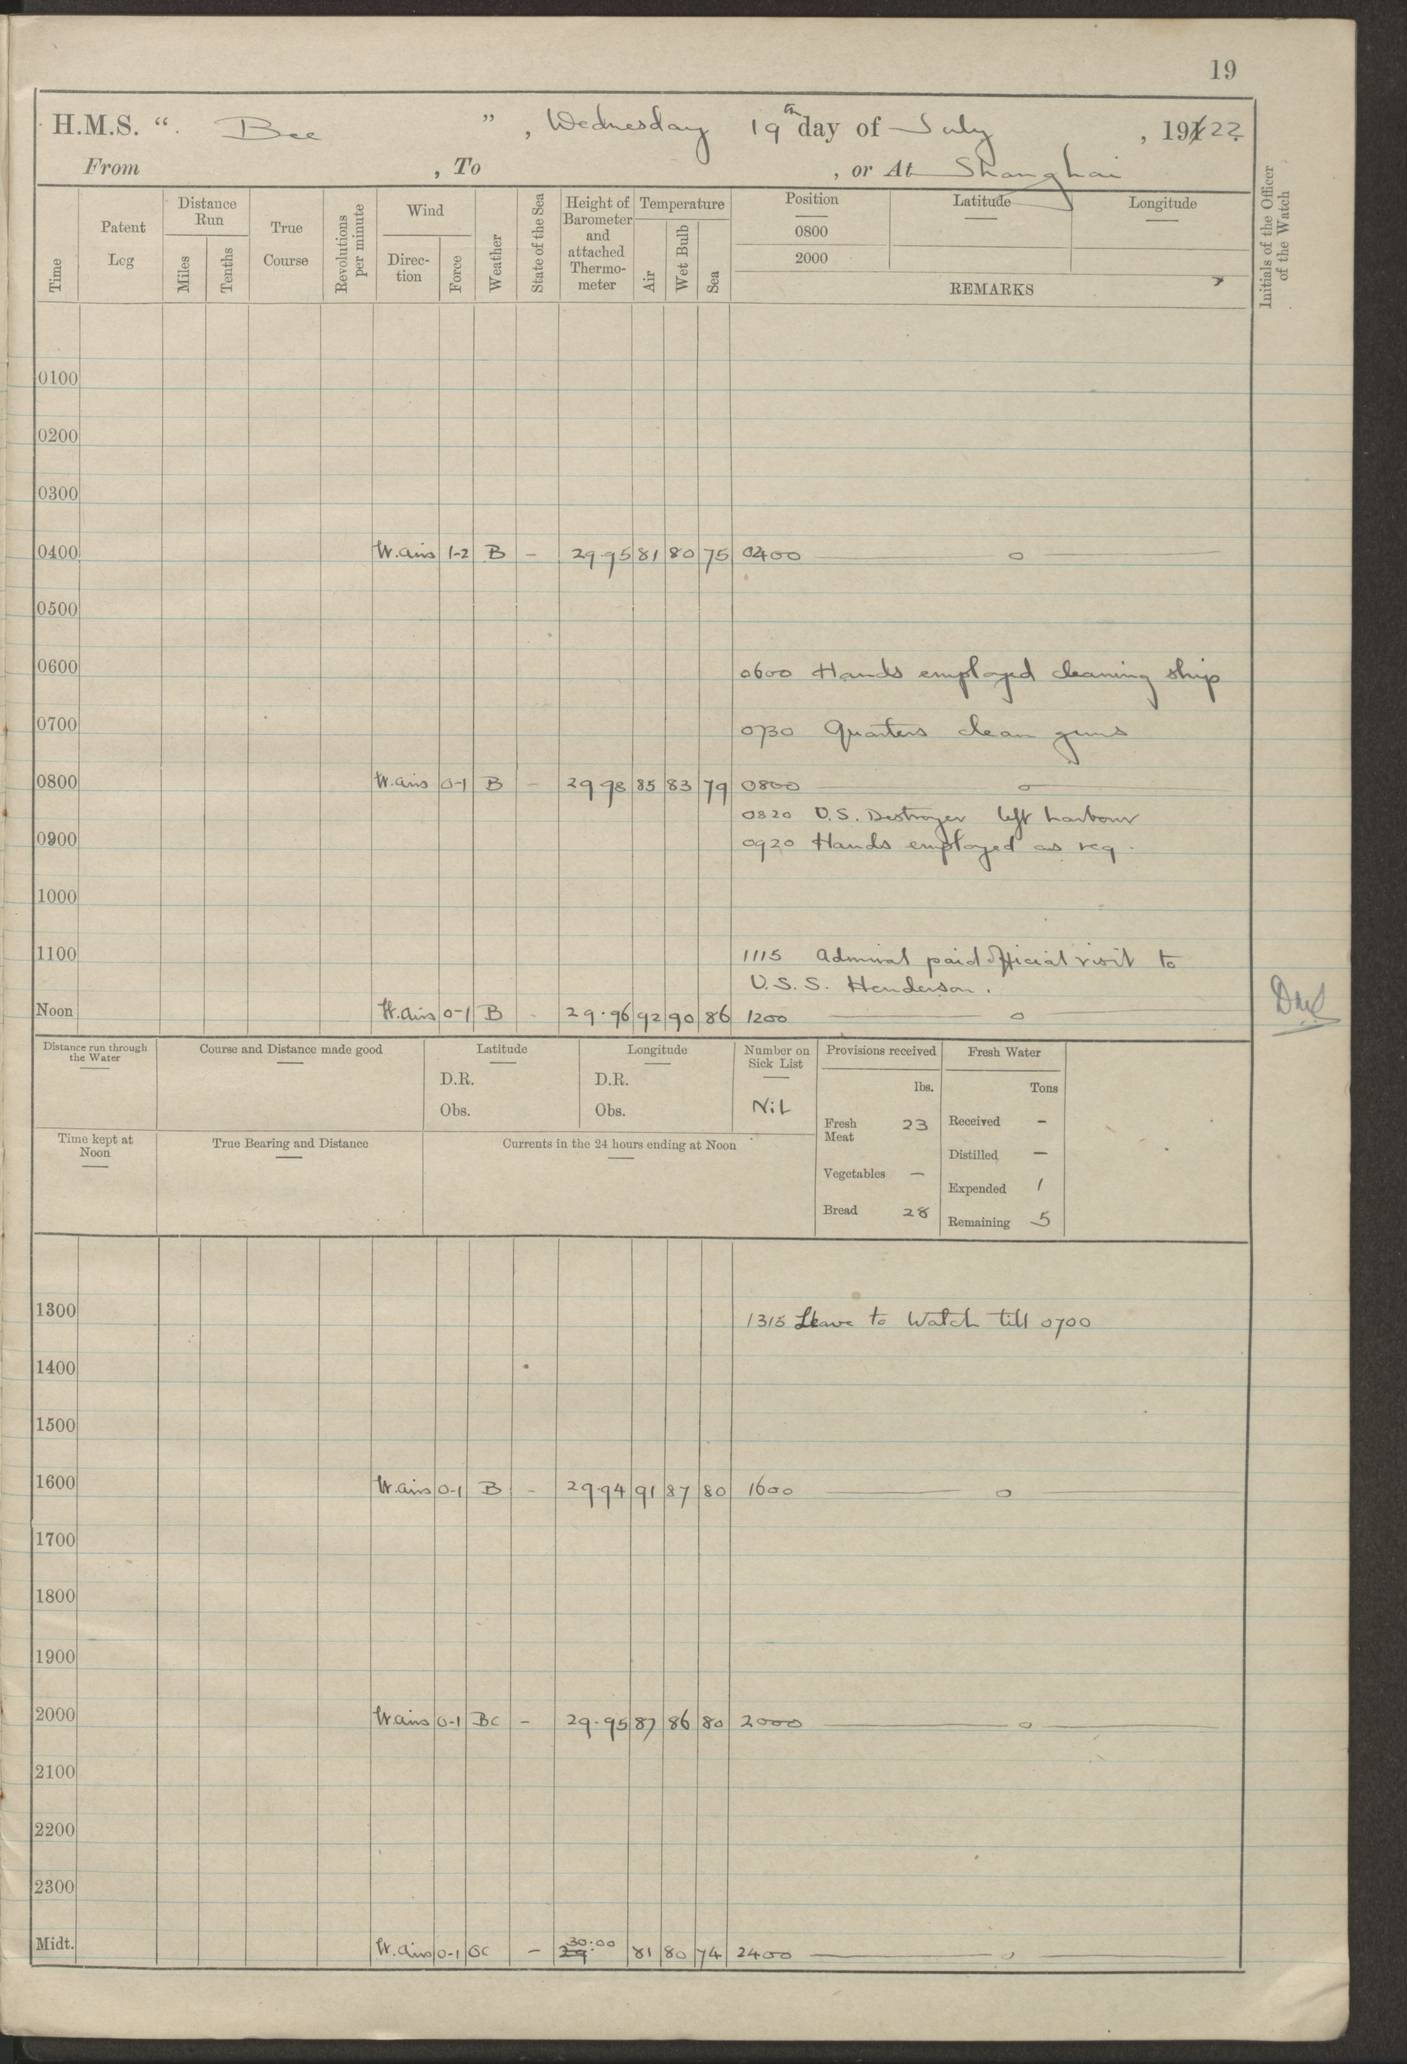 19
H.M.S. “ Bee ” , Wednesday 19th day of July , 1922
From , To , or At Shanghai
Time
Patent Log
Distance Run
Miles
Tenths
True Course
Revolutions per minute
Wind
Direction
Force
Weather
State of the Sea
Height of Barometer and attached Thermometer
Temperature
Air
Wet Bulb
Sea
Position
0800
2000
Latitude
Longitude
REMARKS
Initials of the Officer of the Watch
0100
0200
0300
0400 W. airs 1-2 B - 29.95 81 80 75 0400 o
0500
0600 0600 Hands employed cleaning ship
0700 0730 Quarters clean guns
0800 W. airs 0-1 B - 29 98 85 83 79 0800 o
0820 U.S. Destroyer left harbour
0900 0920 Hands employed as req.
1000
1100 1115 Admiral paid official visit to
U.S.S. Henderson.
Noon W. airs 0-1 B - 29.96 92 90 86 1200 o
Distance run through the Water
Course and Distance made good
Latitude
D.R.
Obs.
Longitude
D.R.
Obs.
Number on Sick List
Nil
Provisions received
lbs.
Fresh Meat 23
Vegetables —
Bread 28
Fresh Water
Tons
Received -
Distilled —
Expended 1
Remaining 5
Time kept at Noon
True Bearing and Distance
Currents in the 24 hours ending at Noon
1300 1315 Leave to Watch till 0700
1400
1500
1600 W. airs 0-1 B - 29.94 91 87 80 1600 o
1700
1800
1900
2000 W airs 0-1 BC - 29.95 87 86 80 2000 o
2100
2200
2300
Midt. W. airs 0-1 BC - 30.00 81 80 74 2400 o